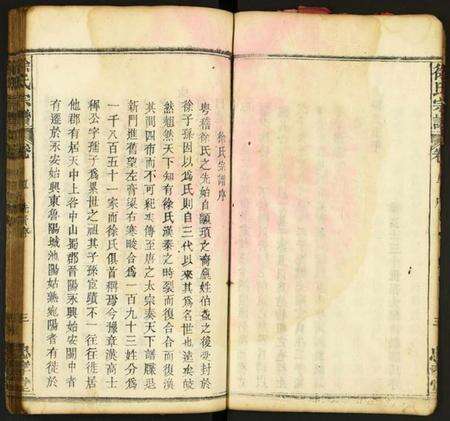 徐氏宗譜
徐氏宗譜序
粵稽徐氏之先始自顓頊之裔皇姓伯益之後受封於
徐子孫因以為氏則自三代以來其為名世也遠矣
然天下知有徐氏漢秦之時裂而復合合而復漢
其間四布而不可紀求傳至唐之太宗奏天下譜牒是
新門進舊望左膏梁右寒畯合為一百九十三姓分為
一千八百五十一家而徐氏俱首稱焉今豫章漢高士
稱公字孺子為累世之祖其子孫宦蹟不一往往徙居
他郡有居天中上谷中山蜀郡晉陽永興始安關中者
有遷於永安始興東魯陽城池陽姑孰宛陽者有徙於
三
徐氏宗譜
卷
序
三
堂